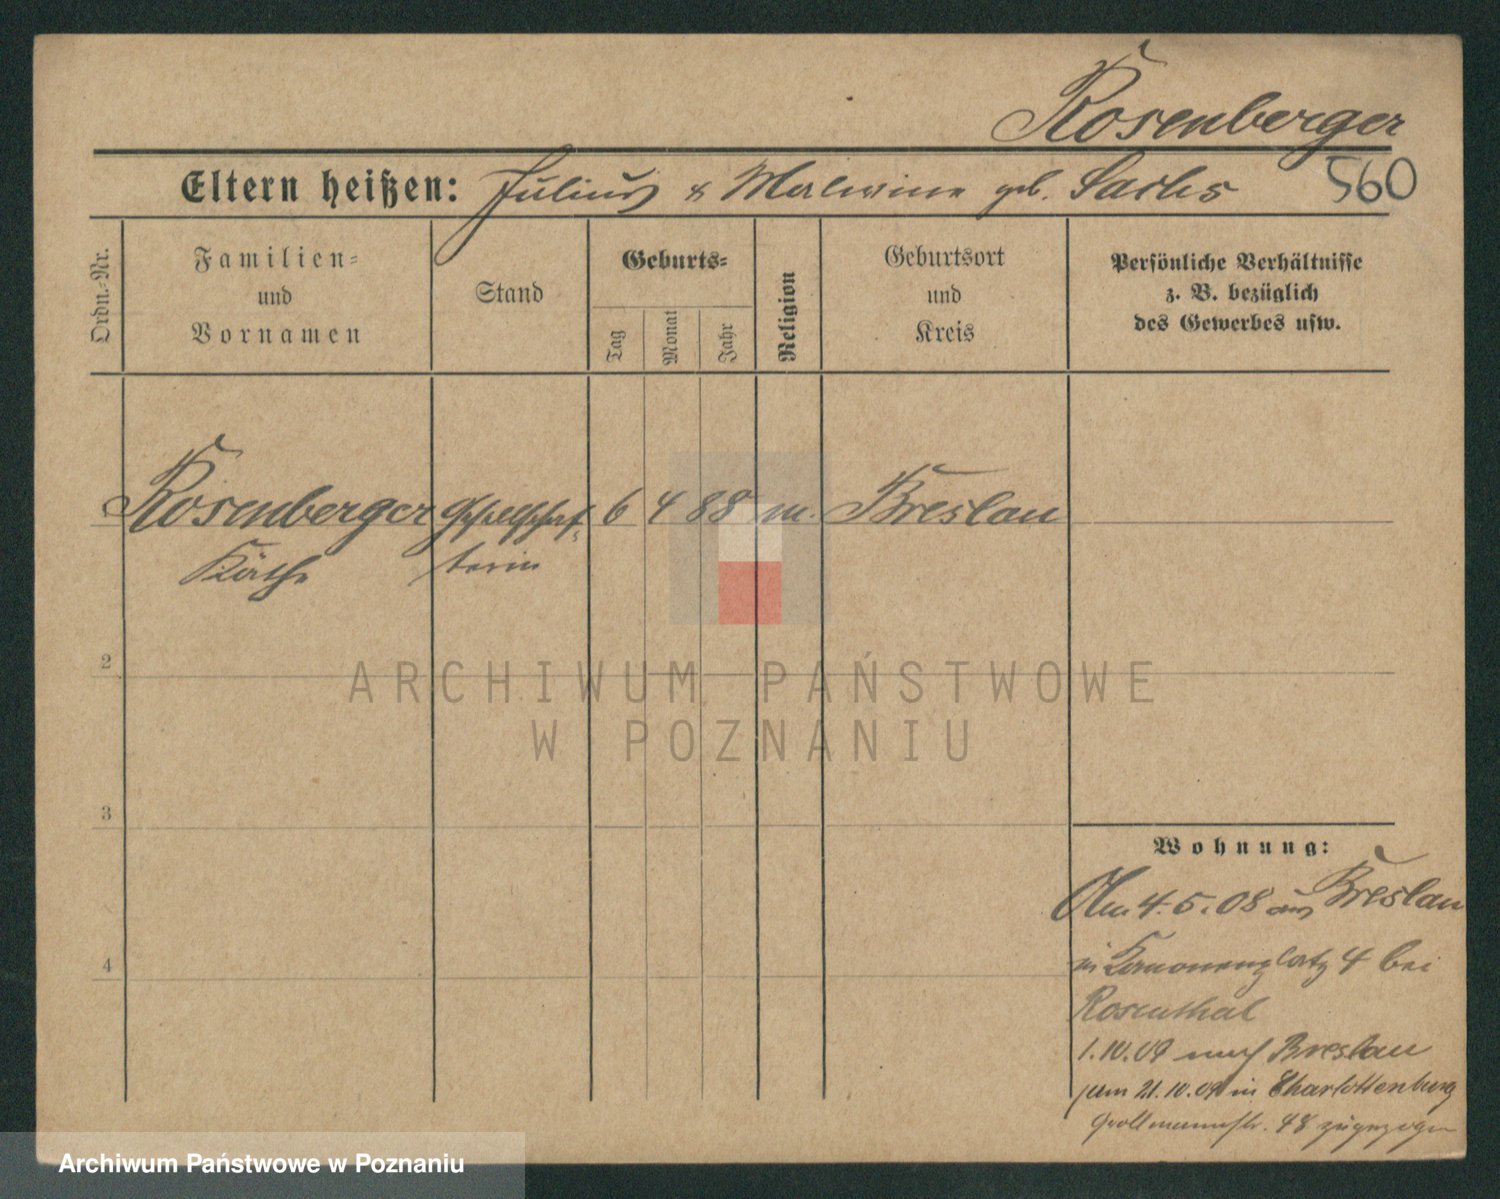 Rosenberger
560
Eltern heißen: Julius & Malwine geb. Sachs
Ordn.-Nr.
Familien-
und
Vornamen
Stand
Geburts-
Tag
Monat
Jahr
Religion
Geburtsort
und
Kreis
Persönliche Verhältnisse
z. B. bezüglich
des Gewerbes usw.
1 Rosenberger Gesellschaf- 6 4 88 m. Breslau
Käthe terin
2
3
4
Wohnung:
Am 4.5.08 aus Breslau
in Kanonenplatz 4 bei
Rosenthal
1.10.09 nach Breslau
am 21.10.09 in Charlottenburg
Grollmannstr. 48 zugezogen
ARCHIWUM PAŃSTWOWE
W POZNANIU
Archiwum Państwowe w Poznaniu